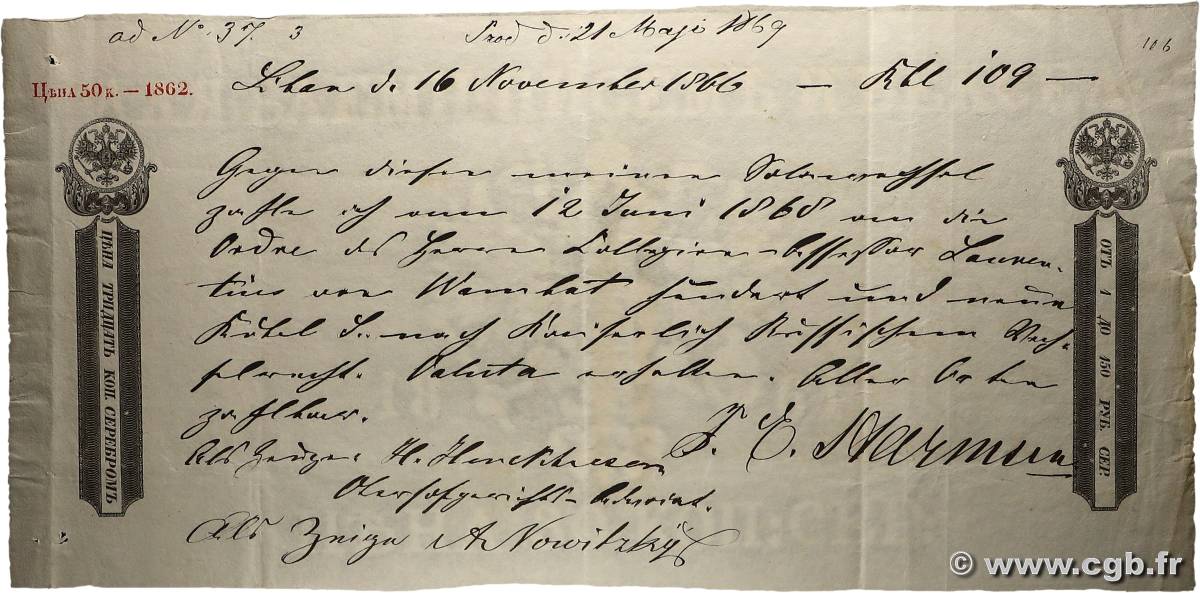 ad No. 37. 3 Prod. d. 21 Maji 1869
106
Цѣна 50 к. — 1862.
Libau d. 16 November 1866 — Rbl 109 —
Gegen diesen meinen Solawechsel
zahle ich am 12 Juni 1868 an die
Ordre des Herrn Collegien-Assessor Lauren-
tius von Wambat hundert und neun
Rubel S. nach Kaiserlich Russischem Wech-
selrecht. Valuta erhalten. Aller Orten
zahlbar.
J. E. Harmsen
Als Zeuge: H.
Oberhofgerichts-Advocat.
Als Zeuge A Nowitzky
ЦѢНА ТРИДЦАТЬ КОП. СЕРЕБРОМЪ
ОТЪ 1 ДО 150 РУБ. СЕР.
© www.cgb.fr